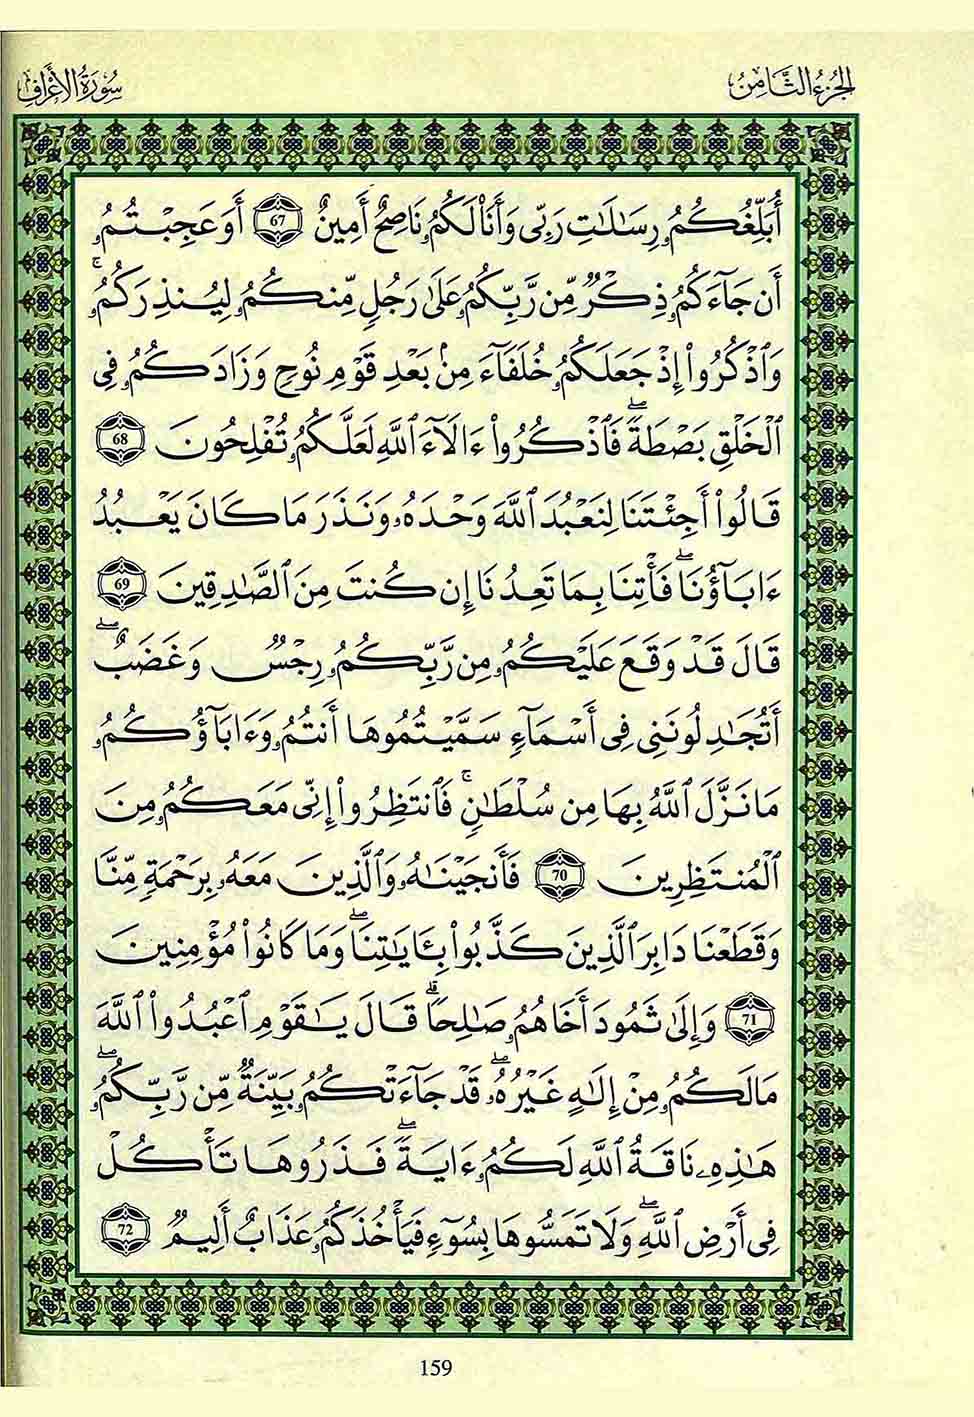 الجُزْءُ الثَّامِنُ
سُورَةُ الأَعْرَافِ
أُبَلِّغُكُمُۥ رِسَٰلَٰتِ رَبِّى وَأَنَا۠ لَكُمُۥ نَاصِحٌ أَمِينٌ 67 أَوَعَجِبْتُمُۥ
أَن جَآءَكُمُۥ ذِكْرٌ مِّن رَّبِّكُمُۥ عَلَىٰ رَجُلٍ مِّنكُمُۥ لِيُنذِرَكُمُۥ ۚ
وَٱذْكُرُوا۟ إِذْ جَعَلَكُمُۥ خُلَفَآءَ مِنۢ بَعْدِ قَوْمِ نُوحٍ وَزَادَكُمُۥ فِى
ٱلْخَلْقِ بَصْطَةً ۖ فَٱذْكُرُوا۟ ءَالَآءَ ٱللَّهِ لَعَلَّكُمُۥ تُفْلِحُونَ 68
قَالُوا۟ أَجِئْتَنَا لِنَعْبُدَ ٱللَّهَ وَحْدَهُۥ وَنَذَرَ مَا كَانَ يَعْبُدُ
ءَابَآؤُنَا ۖ فَأْتِنَا بِمَا تَعِدُنَا إِن كُنتَ مِنَ ٱلصَّٰدِقِينَ 69
قَالَ قَدْ وَقَعَ عَلَيْكُمُۥ مِن رَّبِّكُمُۥ رِجْسٌ وَغَضَبٌ ۖ
أَتُجَٰدِلُونَنِى فِى أَسْمَآءٍ سَمَّيْتُمُوهَا أَنتُمُۥ وَءَابَآؤُكُمُۥ
مَا نَزَّلَ ٱللَّهُ بِهَا مِن سُلْطَٰنٍ ۚ فَٱنتَظِرُوا۟ إِنِّى مَعَكُمُۥ مِنَ
ٱلْمُنتَظِرِينَ 70 فَأَنجَيْنَٰهُۥ وَٱلَّذِينَ مَعَهُۥ بِرَحْمَةٍ مِّنَّا
وَقَطَعْنَا دَابِرَ ٱلَّذِينَ كَذَّبُوا۟ بِـَٔايَٰتِنَا ۖ وَمَا كَانُوا۟ مُؤْمِنِينَ
71 وَإِلَىٰ ثَمُودَ أَخَاهُمُۥ صَٰلِحًا ۗ قَالَ يَٰقَوْمِ ٱعْبُدُوا۟ ٱللَّهَ
مَا لَكُمُۥ مِنْ إِلَٰهٍ غَيْرُهُۥ ۖ قَدْ جَآءَتْكُمُۥ بَيِّنَةٌ مِّن رَّبِّكُمُۥ ۖ
هَٰذِهِۦ نَاقَةُ ٱللَّهِ لَكُمُۥ ءَايَةً ۖ فَذَرُوهَا تَأْكُلْ
فِى أَرْضِ ٱللَّهِ ۖ وَلَا تَمَسُّوهَا بِسُوٓءٍ فَيَأْخُذَكُمُۥ عَذَابٌ أَلِيمٌ 72
159